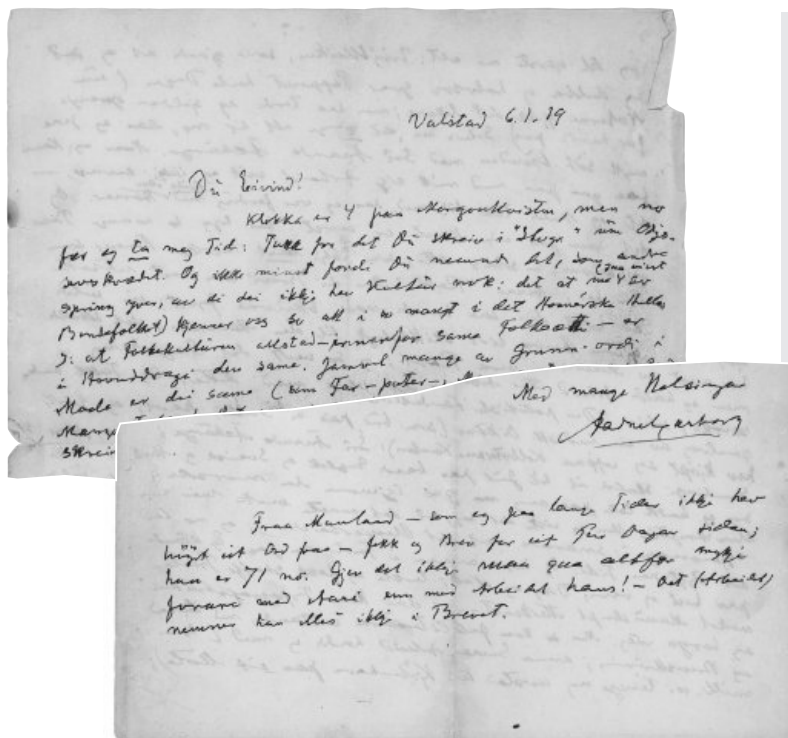 Valstad 6.1.19
Du Eivind!
Klokka er 4 paa Morgonkvisten, men no
fær eg ta meg Tid: Takk for det Du skreiv i "Syn" um Odys-
seuskvædet. Og ikkje minst fordi Du nemnde det, som andre
spring yver, av di dei ikkje hev Kultur nok: det at me
Bondefolket) kjenner oss so att i so mangt i det Homerske
at Folkekulturen allstad innanfor same Folkeætti – er
i Hovuddragi den same. Jamvel mange av Grunn-ordi i
Maale er dei same (som Far – pater –
skreiv
Med mange Helsingar
Arne Garborg
Fraa Mauland – som eg paa lange Tider ikkje hev
høyrt eit Ord fraa – fekk eg Brev for eit Par Dagar sidan;
han er 71 no. Gjev det ikkje maa gaa altfor mykje
med enn med Arbeidet hans! – Det (Arbeidet)
nemner han elles ikkje i Brevet.